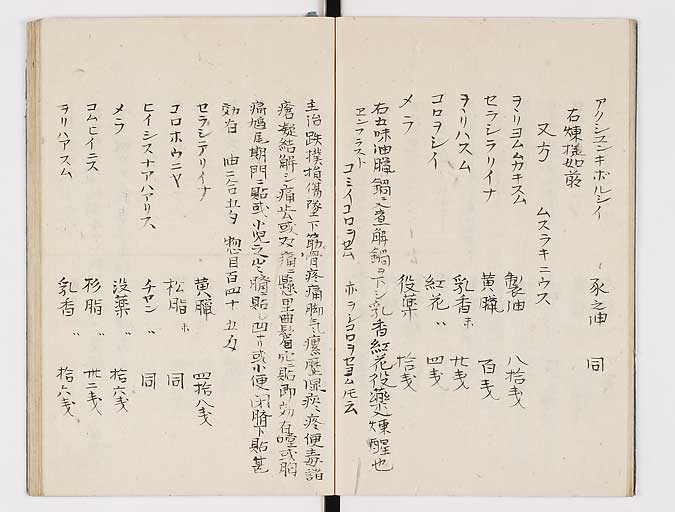 アクシユンキボルシイ 豕之油 同
右煉様如前
又方 ムスラキニウス
ヲヽリヨムムカキスム 製油 八拾戔
セラシラリイナ 黄臘 百戔
ヲヽリハスム 乳香末 廿戔
コロヲシイ 紅花〃 四戔
メラ 役藥 拾戔
右五味油臘鍋ニ煮解鍋ヲ下シ乳香紅花役藥煉醒也
ヱンフラスト コミイコロヲセム 亦ヲシコロヲセヨム圧云
主治跌撲損傷墜下筋骨疼痛脚气瘰癧湿疾疼便毒諸
瘡凝結解シ痛去或ハ痛ニ懸里曲鬢ニ貼即効在喧或胸
痛鳩尾期門ニ貼或小児之ハ臍貼し四ナリ或小便閉臍下貼甚
効有 油二合五夕 惣目百四十五夕
セラシテリイナ 黄臘 四拾八戔
コロホウニヤ 松脂末 同
ヒイシスナアハアリス、 チヤン〃 同
メラ 没薬〃 拾六戔
コムヒイニス 杉脂〃 廿二戔
ヲリハアスム 乳香〃 拾六戔